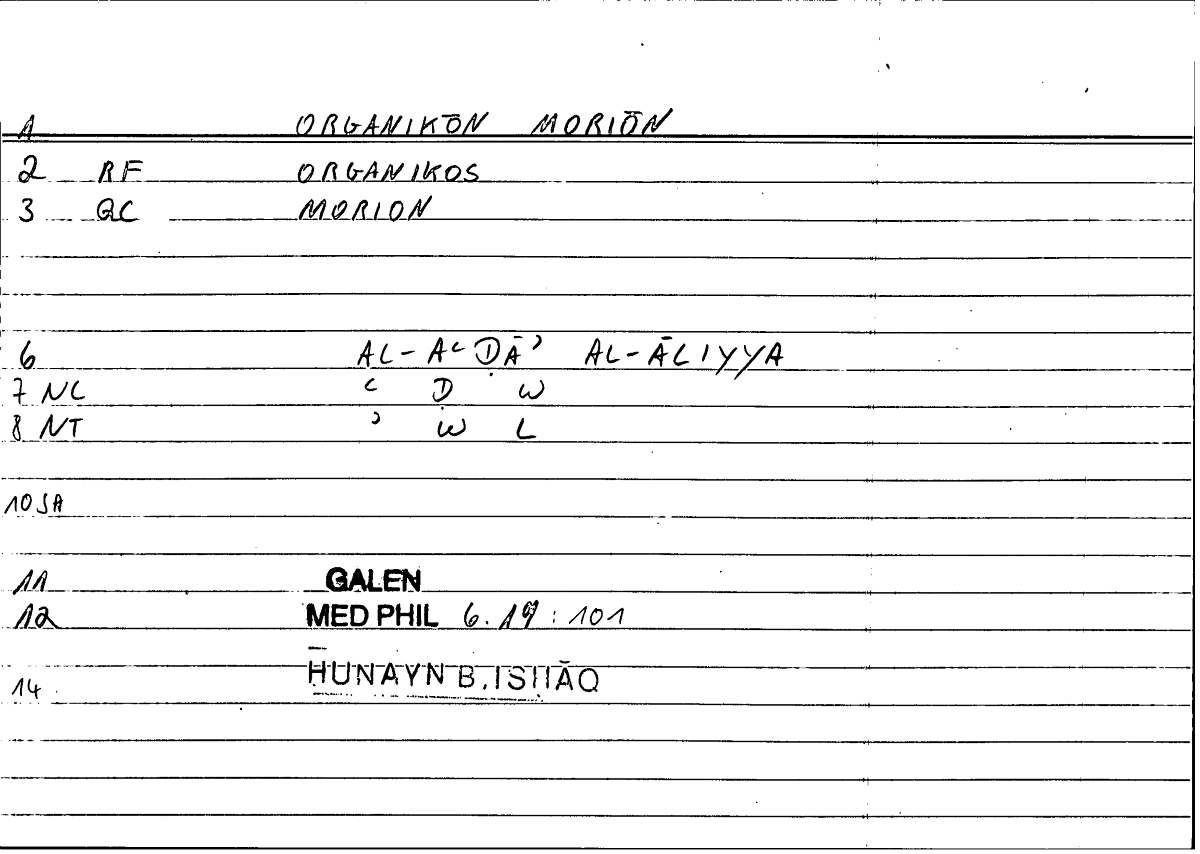 1 ORGANIKŌN MORIŌN
2 RF ORGANIKOS
3 QC MORION
6 AL-AʿḌĀʾ AL-ĀLIYYA
7 NC ʿ Ḍ W
8 NT ʾ W L
10 SA
11 GALEN
12 MED PHIL 6.19:101
14 HUNAYN B. ISḤĀQ